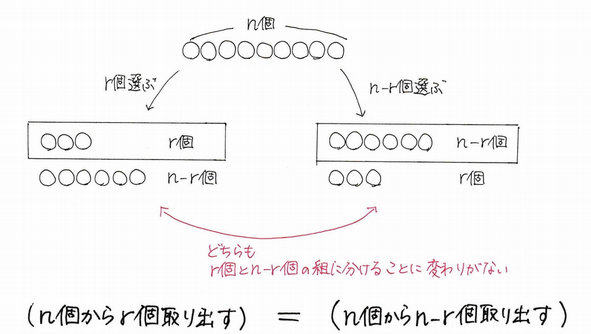 n個
r個選ぶ
n-r個選ぶ
r個
n-r個
n-r個
r個
どちらも
r個とn-r個の組に分けることに変わりがない
(n個からr個取り出す) = (n個からn-r個取り出す)